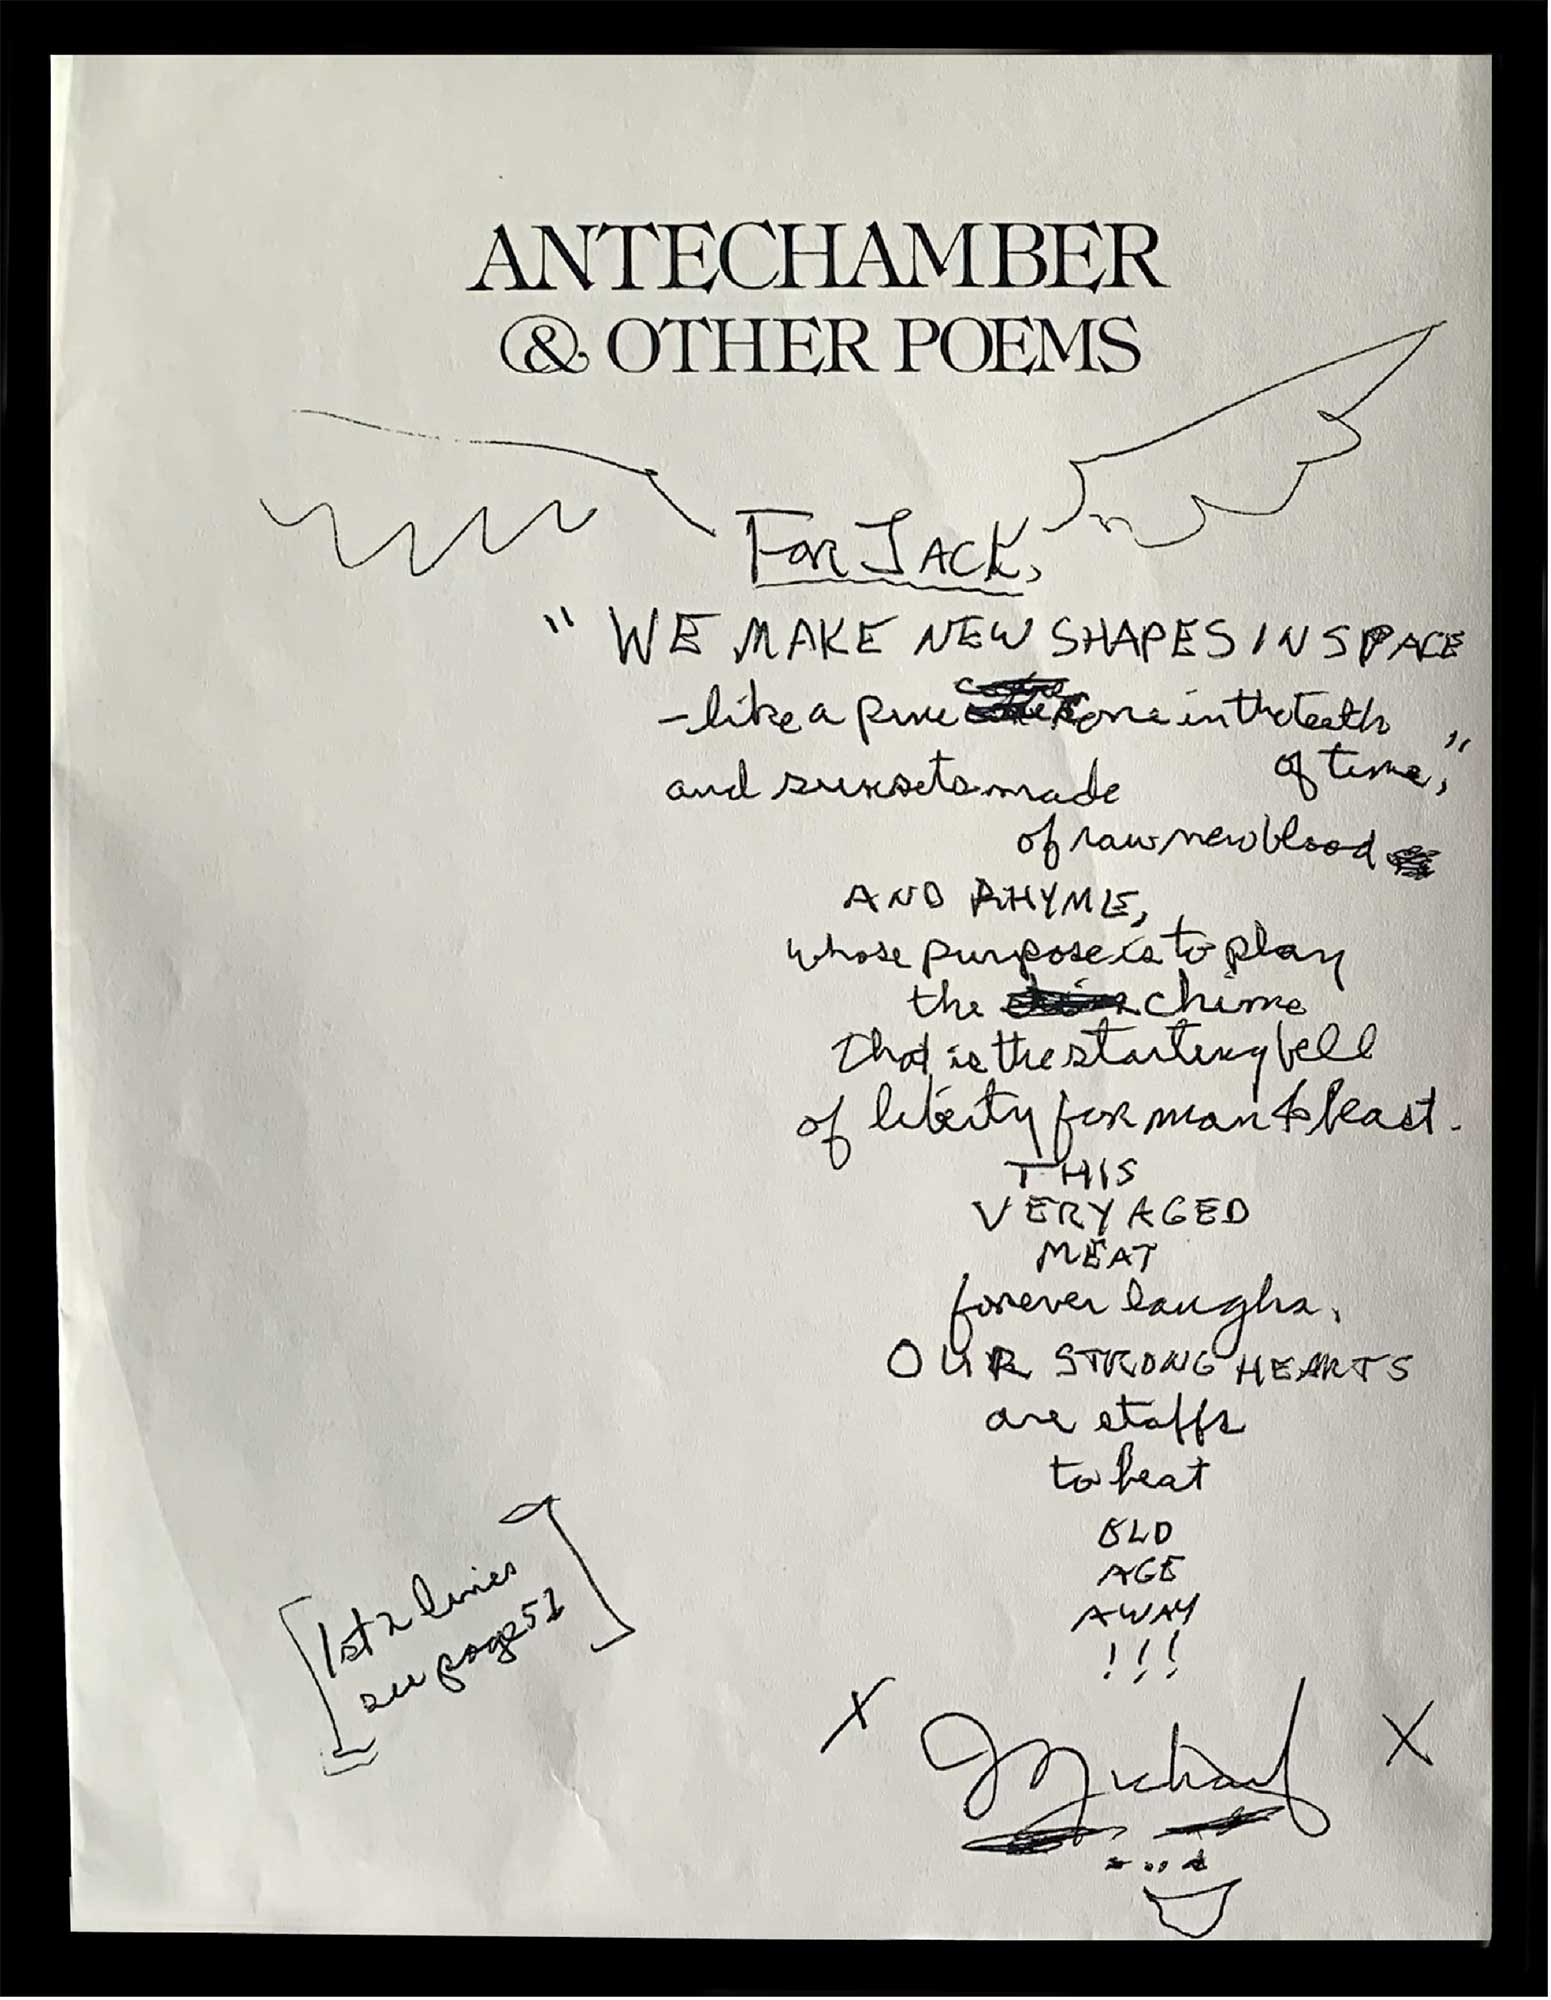 ANTECHAMBER
& OTHER POEMS
For JACK,
"WE MAKE NEW SHAPES IN SPACE
– like a pine cone in the teeth
of time,"
and sunsets made
of raw new blood
AND RHYME,
whose purpose is to play
the chime
that is the starting bell
of liberty for man & beast.
THIS
VERY AGED
MEAT
forever laughs.
OUR STRONG HEARTS
are staffs
to beat
OLD
AGE
AWAY
!!!
[1st 2 lines
see page 51]
X Michael X